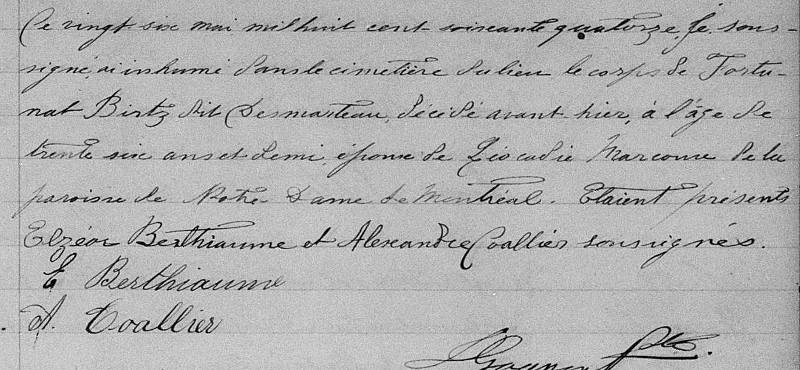 Ce vingt-six mai mil huit cent soixante quatorze, je sous-
signé, ai inhumé dans le cimetière du lieu le corps de Fortu-
nat Birtz dit Desmarteau, décédé avant-hier, à l'âge de
trente six ans et demi, époux de Léocadie Marcoux de la
paroisse de Notre Dame de Montréal. Etaient présents
Elzéar Berthiaume et Alexandre Coallier soussignés.
E Berthiaume
A. Coallier